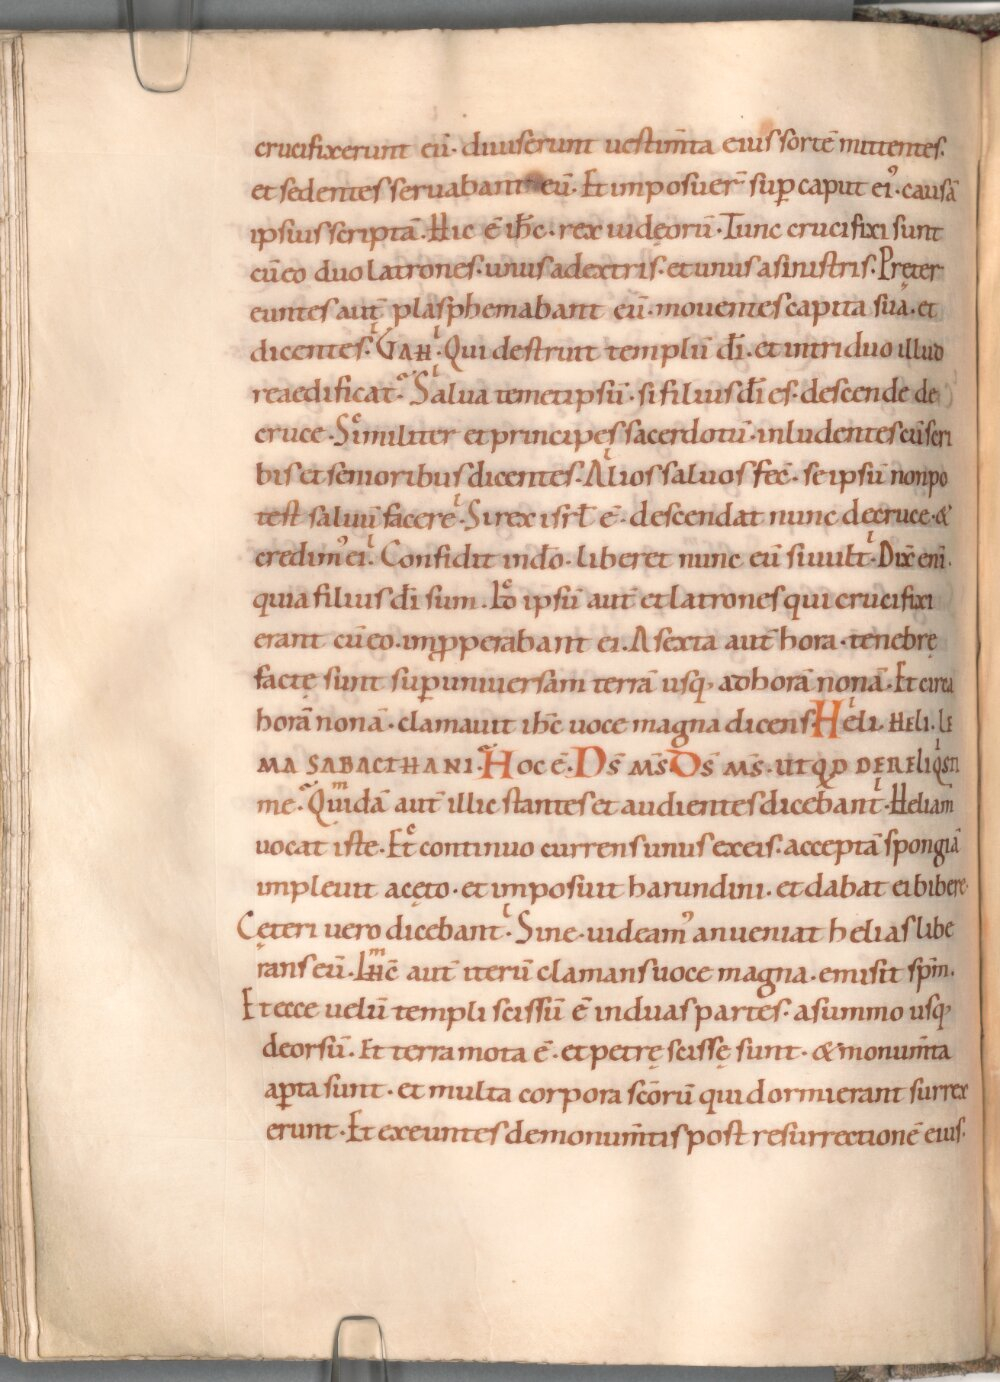 crucifixerunt eū· diuiserunt uestim̄ta eius sortē mittentes.
et sedentes seruabant eū· Et imposuer̄ sup̱ caput ei᾽· causā
ipsius scriptā· Hic ē ih̄c· rex iudęorū· Tunc crucifixi sunt
cū eo duo latrones· unus adextris· et unus asinistris· Pręter
euntes aut̄ plasphemabant eū· mouentes capita sua· et
dicentes· Qui destruit templū dī· et intriduo illud
reaedificat· Salua temetipsū· si filius dī es· descende de
cruce· Similiter et principes sacerdotū· inludentes cū scri
bis et senioribus dicentes· Alios saluos fec̄· se ipsū non po
test saluū facere· Si rex isrl̄ ē· descendat nunc decruce· &
credim᾽ ei· Confidit indō· liberet nunc eū si uult̄· Dix̄ eni̅·
quia filius dī sum· ipsū aut̄ et latrones qui crucifixi
erant cū eo· imꝓperabant ei· A sexta aut̄ hora· tenebrę
factę sunt sup̱ uniuersam terrā usq; ad horā nonā· Et circa
horā nonā· clamauit ih̄c uoce magna dicens· Heli· HELI· LE
MA SABACTHANI· Hoc ē· Ds̄ ms̄ Ds̄ ms̄· UT QD DERELIQSTI
me· Quidā aut̄ illic stantes et audientes dicebant· Heliam
uocat iste· Et continuo currens unus ex eis· acceptā spongiā
impleuit acęto· et imposuit harundini· et dabat ei bibere·
Cęteri uero dicebant· Sine· uideam᾽ an ueniat helias libe
rans eū· Ih̄c aut̄ iterū clamans uoce magna· emisit sp̄m·
Et ecce uelū templi scissū ē induas partes· asummo usq;
deorsū· Et terra mota ē· et petrę scissę sunt· & monum̄ta
ap̱ta sunt· et multa corpora sc̄orū qui dormierant surrex
erunt· Et exeuntes demonum̄tis post resurrectionē eius·